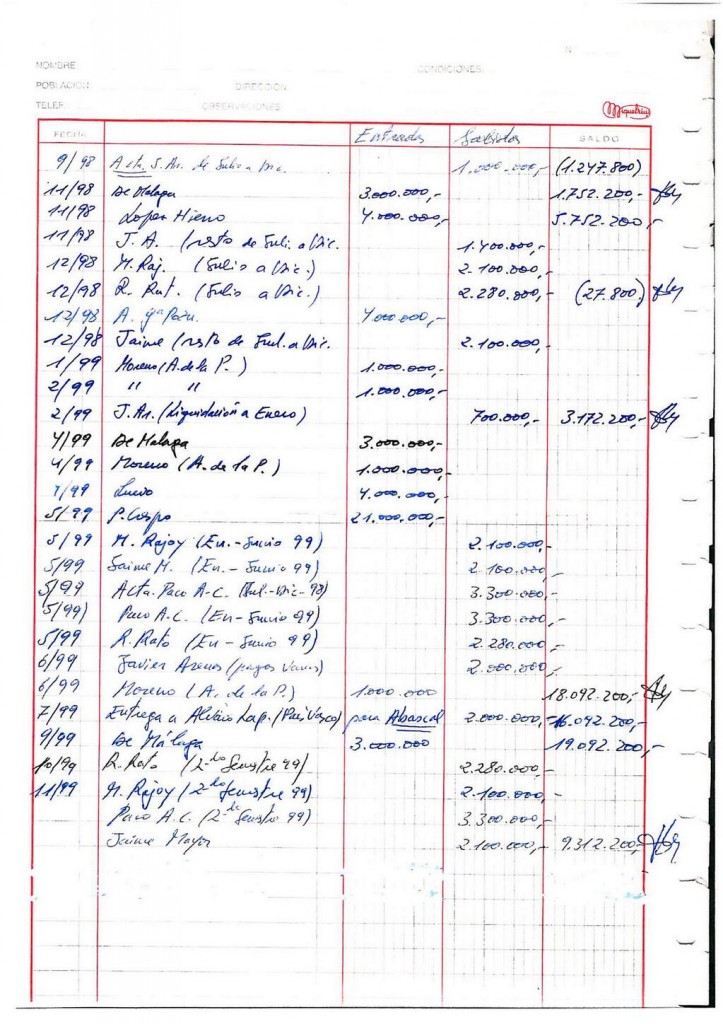 Nº
NOMBRE CONDICIONES
POBLACION DIRECCION
TELEF. OBSERVACIONES
Miquelrius
FECHA Entradas Salidas SALDO
9/98 A cta. J. Ar. de Julio a Dic. 1.000.000,- (1.247.800)
11/98 De Malaga 3.000.000,- 1.752.200,-
11/98 Lopez Hierro 4.000.000,- 5.752.200,-
11/98 J. A. (resto de Juli. a Dic. 1.400.000,-
12/98 M. Raj. (Julio a Dic.) 2.100.000,-
12/98 R. Rat. (Julio a Dic.) 2.280.000,- (27.800)
12/98 A. 4.000.000,-
12/98 Jaime (resto de Jul. a Dic. 2.100.000,-
1/99 Moreno (A. de la P.) 1.000.000,-
2/99 " " 1.000.000,-
2/99 J. Ar. (Liquidación a Enero) 700.000,- 3.172.200,-
4/99 De Malaga 3.000.000,-
4/99 Moreno (A. de la P.) 1.000.000,-
4/99 4.000.000,-
5/99 P. Crespo 21.000.000,-
5/99 M. Rajoy (En.-Junio 99) 2.100.000,-
5/99 Jaime M. (En.-Junio 99) 2.100.000,-
5/99 A cta. Paco A-C. (Jul.-Dic-98) 3.300.000,-
5/99) Paco A.C. (En-Junio 99) 3.300.000,-
5/99 R. Rato (En-Junio 99) 2.280.000,-
6/99 Javier Arenas (pagos varios) 2.000.000,-
6/99 Moreno (A. de la P.) 1.000.000 18.092.200,-
7/99 Entrega a Alvaro Lap. (País Vasco) para Abascal 2.000.000,- 16.092.200,-
9/99 De Málaga 3.000.000 19.092.200,-
10/99 R. Rato (2º Semestre 99) 2.280.000,-
11/99 M. Rajoy (2º Semestre 99) 2.100.000,-
Paco A.C. (2º Semestre 99) 3.300.000,-
Jaime Mayor 2.100.000,- 9.312.200,-